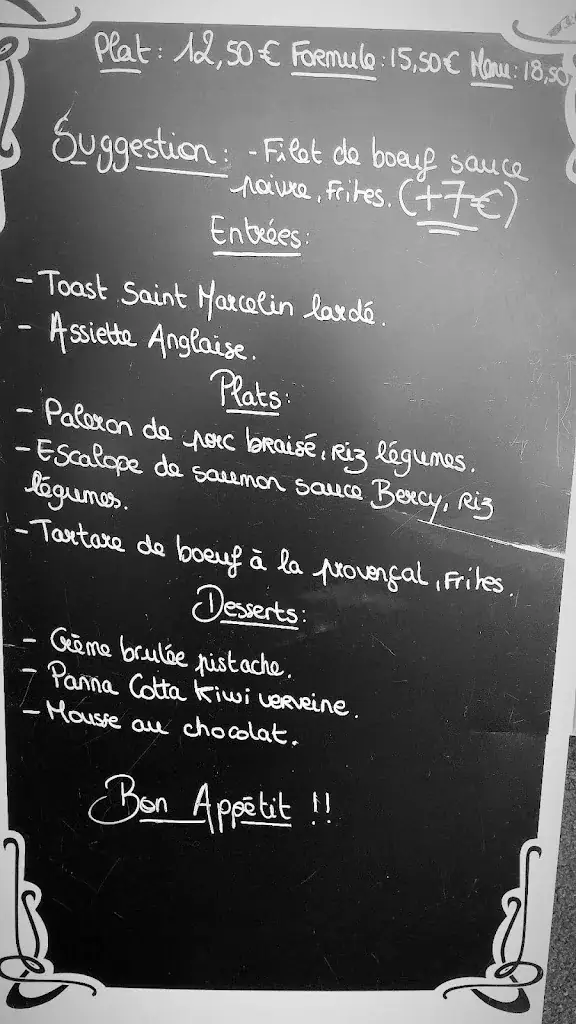 Plat : 12,50 € Formule : 15,50 € Menu : 18,50
Suggestion : - Filet de boeuf sauce
poivre, Frites. (+7€)
Entrées :
- Toast Saint Marcelin lardé.
- Assiette Anglaise.
Plats :
- Paleron de porc braisé, riz légumes.
- Escalope de saumon sauce Bercy, riz
légumes.
- Tartare de boeuf à la provençal, Frites.
Desserts :
- Crème brulée pistache.
- Panna Cotta Kiwi verveine.
- Mousse au chocolat.
Bon Appétit !!